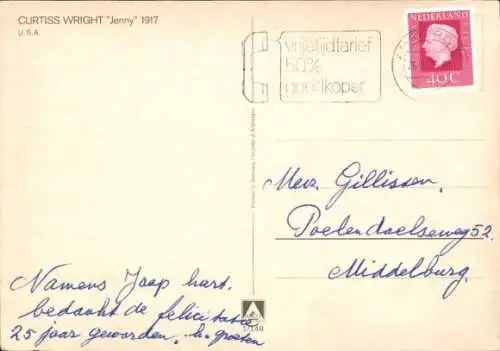 CURTISS WRIGHT "Jenny" 1917
U.S.A.
vrijetijdtarief
50%
goedkoper
NEDERLAND
40 C
Mevr. Gillissen,
Poelendaelseweg 52.
Middelburg.
Namens Jaap hart.
bedankt de felicitatie
25 jaar geworden. h. groeten